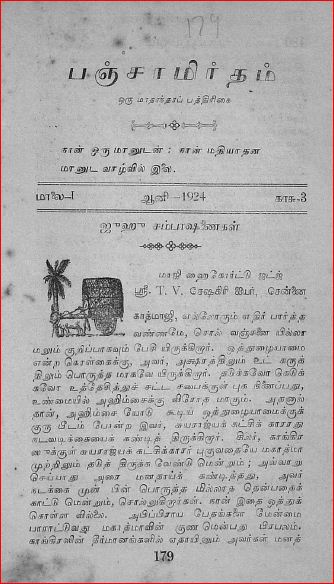 179
பஞ்சாமிர்தம்
ஒரு மாதாந்தரப் பத்திரிகை
நான் ஒரு மானுடன் : நான் மதியாதன
மானுட வாழ்வில் இலை.
மாலை-1 ஆனி -1924 காசு-3
ஜுஹு சம்பாஷணைகள்
மாஜி ஹைகோர்ட்டு ஜட்ஜ்
ஸ்ரீ. T. V. சேஷகிரி ஐயர், சென்னை
காத்மாஜி, எல்லோரும் எதிர் பார்த்த
வண்ணமே, சொல் வஞ்சனை யில்லா
மலும் குறிப்பாகவும் பேசி யிருக்கிறார். ஒத்துழையாமை
என்ற கொள்கைக்கு, அவர், அகத்திலும் உட் கருத்
திலும் பொருத்த மாகவே யிருக்கிறார். தடுக்கவோ கெடுக்
கவோ உத்தேசித்துச் சட்ட சபைக்குள் புக நினைப்பது,
உண்மையில் அஹிம்சைக்கு விரோத மாகும். அதனால்
தான், அஹிம்சை யோடு கூடிய ஒத்துழையாமைக்குக்
குரு பீடம் போன்ற இவர், சுயராஜ்யக் கட்சிக் காரரது
நடவடிக்கையைக் கண்டித் திருக்கிறார். சிலர், காங்கிர
ஸுக்குள் சுயராஜ்யக் கட்சிக்காரர் புகுவதையே மகாத்மா
முற்றிலும் தடுத் திருக்க வேண்டு மென்றும் ; அவ்வாறு
செய்யாது அரை மனதாய்க் கண்டித்தது, அவர்
நடக்கை முன் பின் பொருத்த மில்லாத தென்பதைக்
காட்டு மென்றும், சொல்லுகிறார்கள். நான் இதை ஒத்துக்
கொள்ள வில்லை. அபிப்பிராய பேதங்களை மேன்மை
பாராட்டுவது மகாத்மாவின் குண மென்பது பிரபலம்.
காங்கிரஸின் தீர்மானங்களில் எதாயினும் அவர்கள் மனத்
179